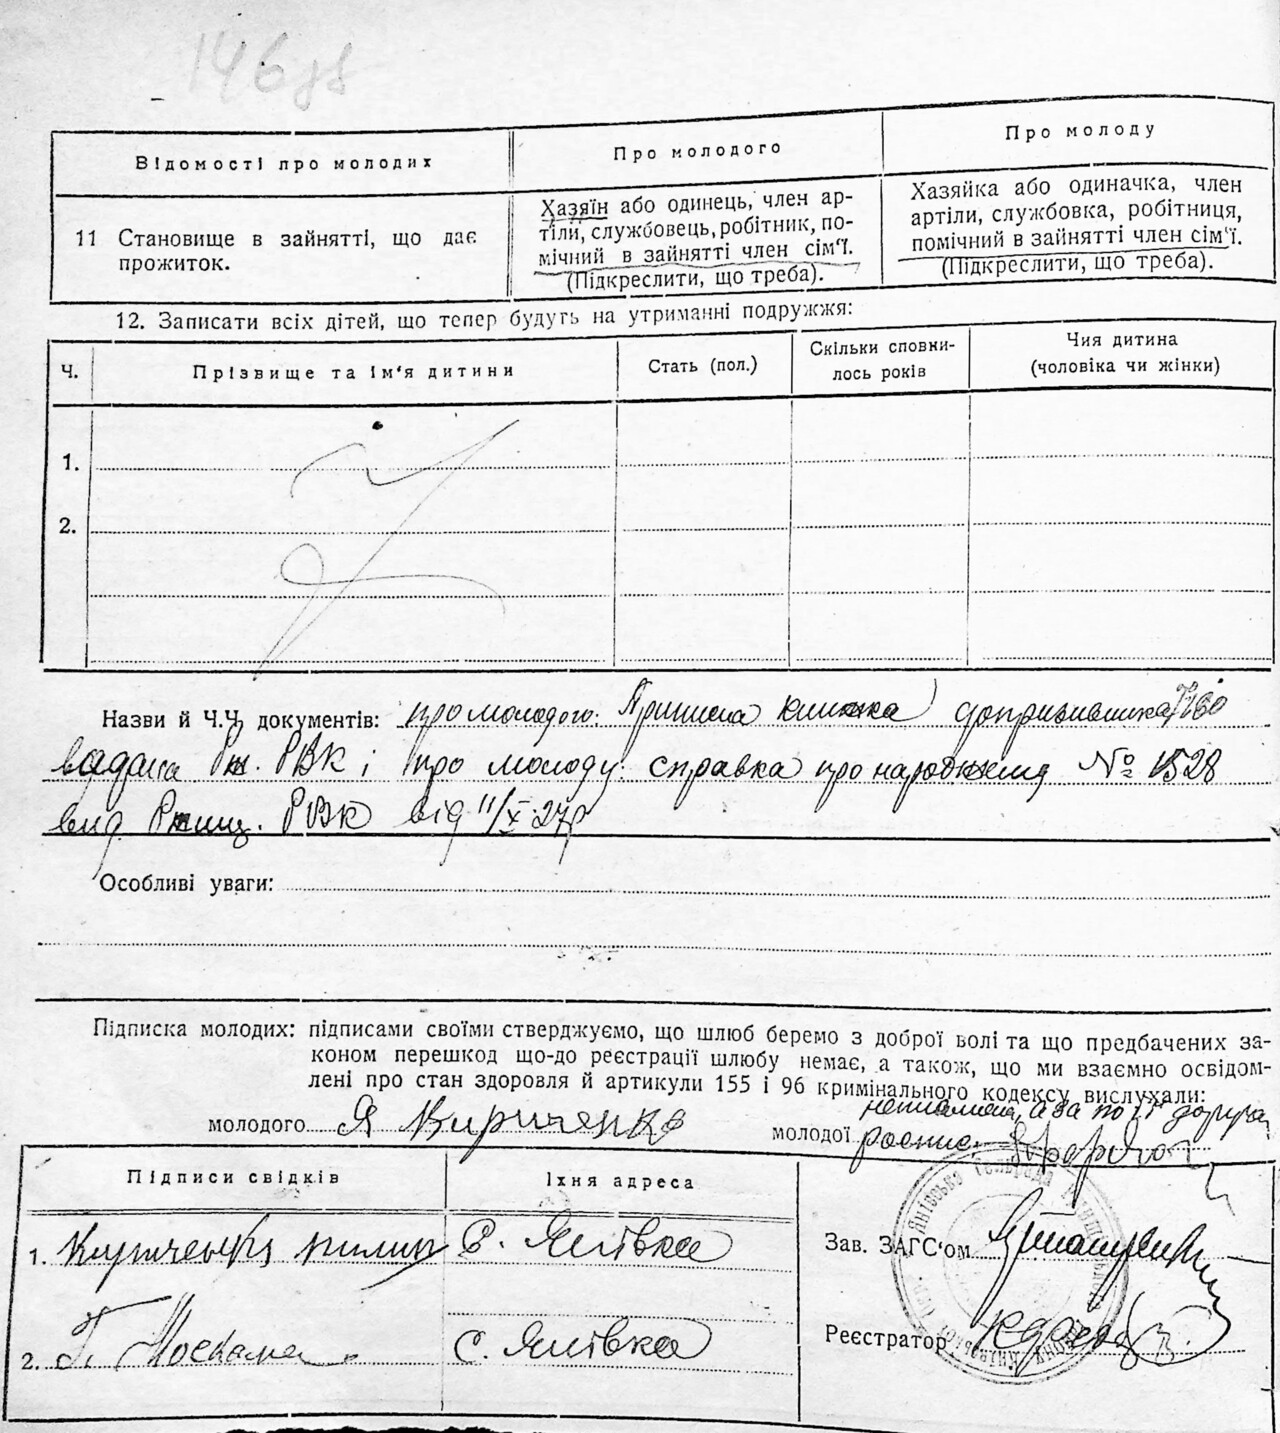 146 зв
Відомості про молодих
Про молодого
Про молоду
11 Становище в зайнятті, що дає
прожиток.
Хазяїн або одинець, член ар-
тіли, службовець, робітник, по-
мічний в зайнятті член сім'ї.
(Підкреслити, що треба).
Хазяйка або одиначка, член
артіли, службовка, робітниця,
помічний в зайнятті член сім'ї.
(Підкреслити, що треба).
12. Записати всіх дітей, що тепер будуть на утриманні подружжя:
Ч.
Прізвище та ім'я дитини
Стать (пол.)
Скільки сповни-
лось років
Чия дитина
(чоловіка чи жінки)
1.
2.
Назви й Ч.Ч. документів: про молодого: Приписна книжка допризивника
видана РВК і про молоду: справка про народження № 1528
вид. РВК від 11/X 27р
Особливі уваги:
Підписка молодих: підписами своїми стверджуємо, що шлюб беремо з доброї волі та що предбачених за-
коном перешкод що-до реєстрації шлюбу немає, а також, що ми взаємно освідом-
лені про стан здоровля й артикули 155 і 96 кримінального кодексу вислухали:
молодого Я Кириченко
молодої неписьмена, а за по її доруч.
роспис.
Підписи свідків
Їхня адреса
1. Кириченко пилип С. Янівка
2. Г. Москале С. Янівка
Зав. ЗАГС'ом
Реєстратор